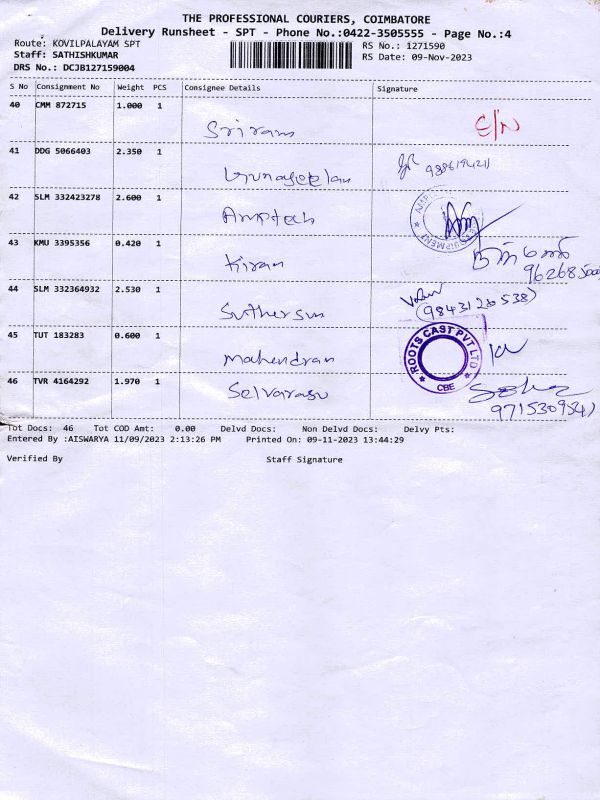 THE PROFESSIONAL COURIERS, COIMBATORE
Delivery Runsheet - SPT - Phone No.:0422-3505555 - Page No.:4
Route: KOVILPALAYAM SPT
RS No.: 1271590
Staff: SATHISHKUMAR
RS Date: 09-Nov-2023
DRS No.: DCJB127159004
S No Consignment No Weight PCS Consignee Details Signature
40 CMM 872715 1.000 1
Sriram
C/N
41 DDG 5066403 2.350 1
Gunaseelan
42 SLM 332423278 2.600 1
Amptech
43 KMU 3395356 0.420 1
Kiran
44 SLM 332364932 2.530 1
Suthersun
(9843126538)
45 TUT 183283 0.600 1
Mahendran
ROOTS CAST PVT LTD
CBE
46 TVR 4164292 1.970 1
Selvarasu
Tot Docs: 46 Tot COD Amt: 0.00 Delvd Docs: Non Delvd Docs: Delvy Pts:
Entered By :AISWARYA 11/09/2023 2:13:26 PM Printed On: 09-11-2023 13:44:29
Verified By Staff Signature